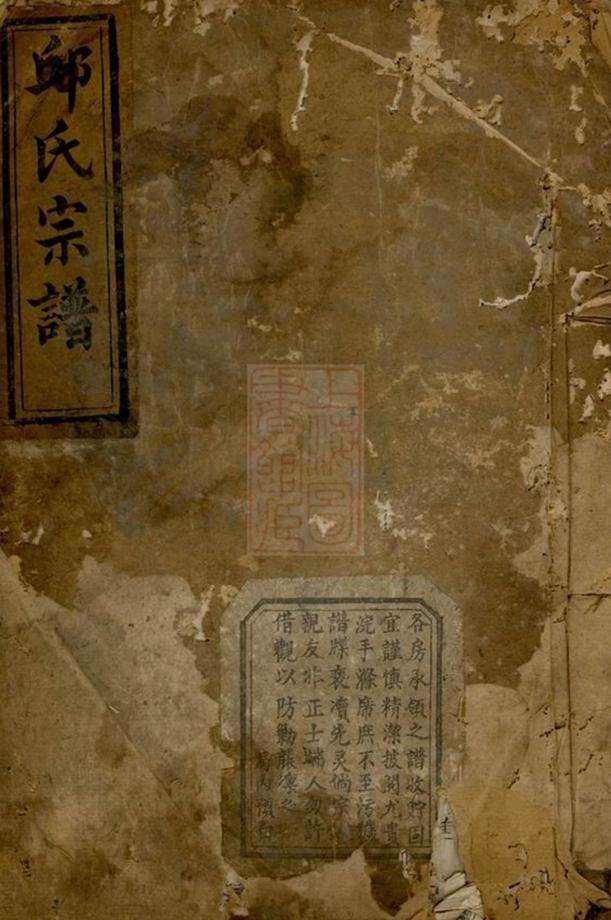 邱氏宗譜
上海圖書館藏
各房承領之譜收貯固
宜謹慎精潔披閱尤貴
淀手滌席庶不至污穢
譜牒褻瀆先灵倘宗
親友非正士端人勿許
借觀以防勦襲凛之